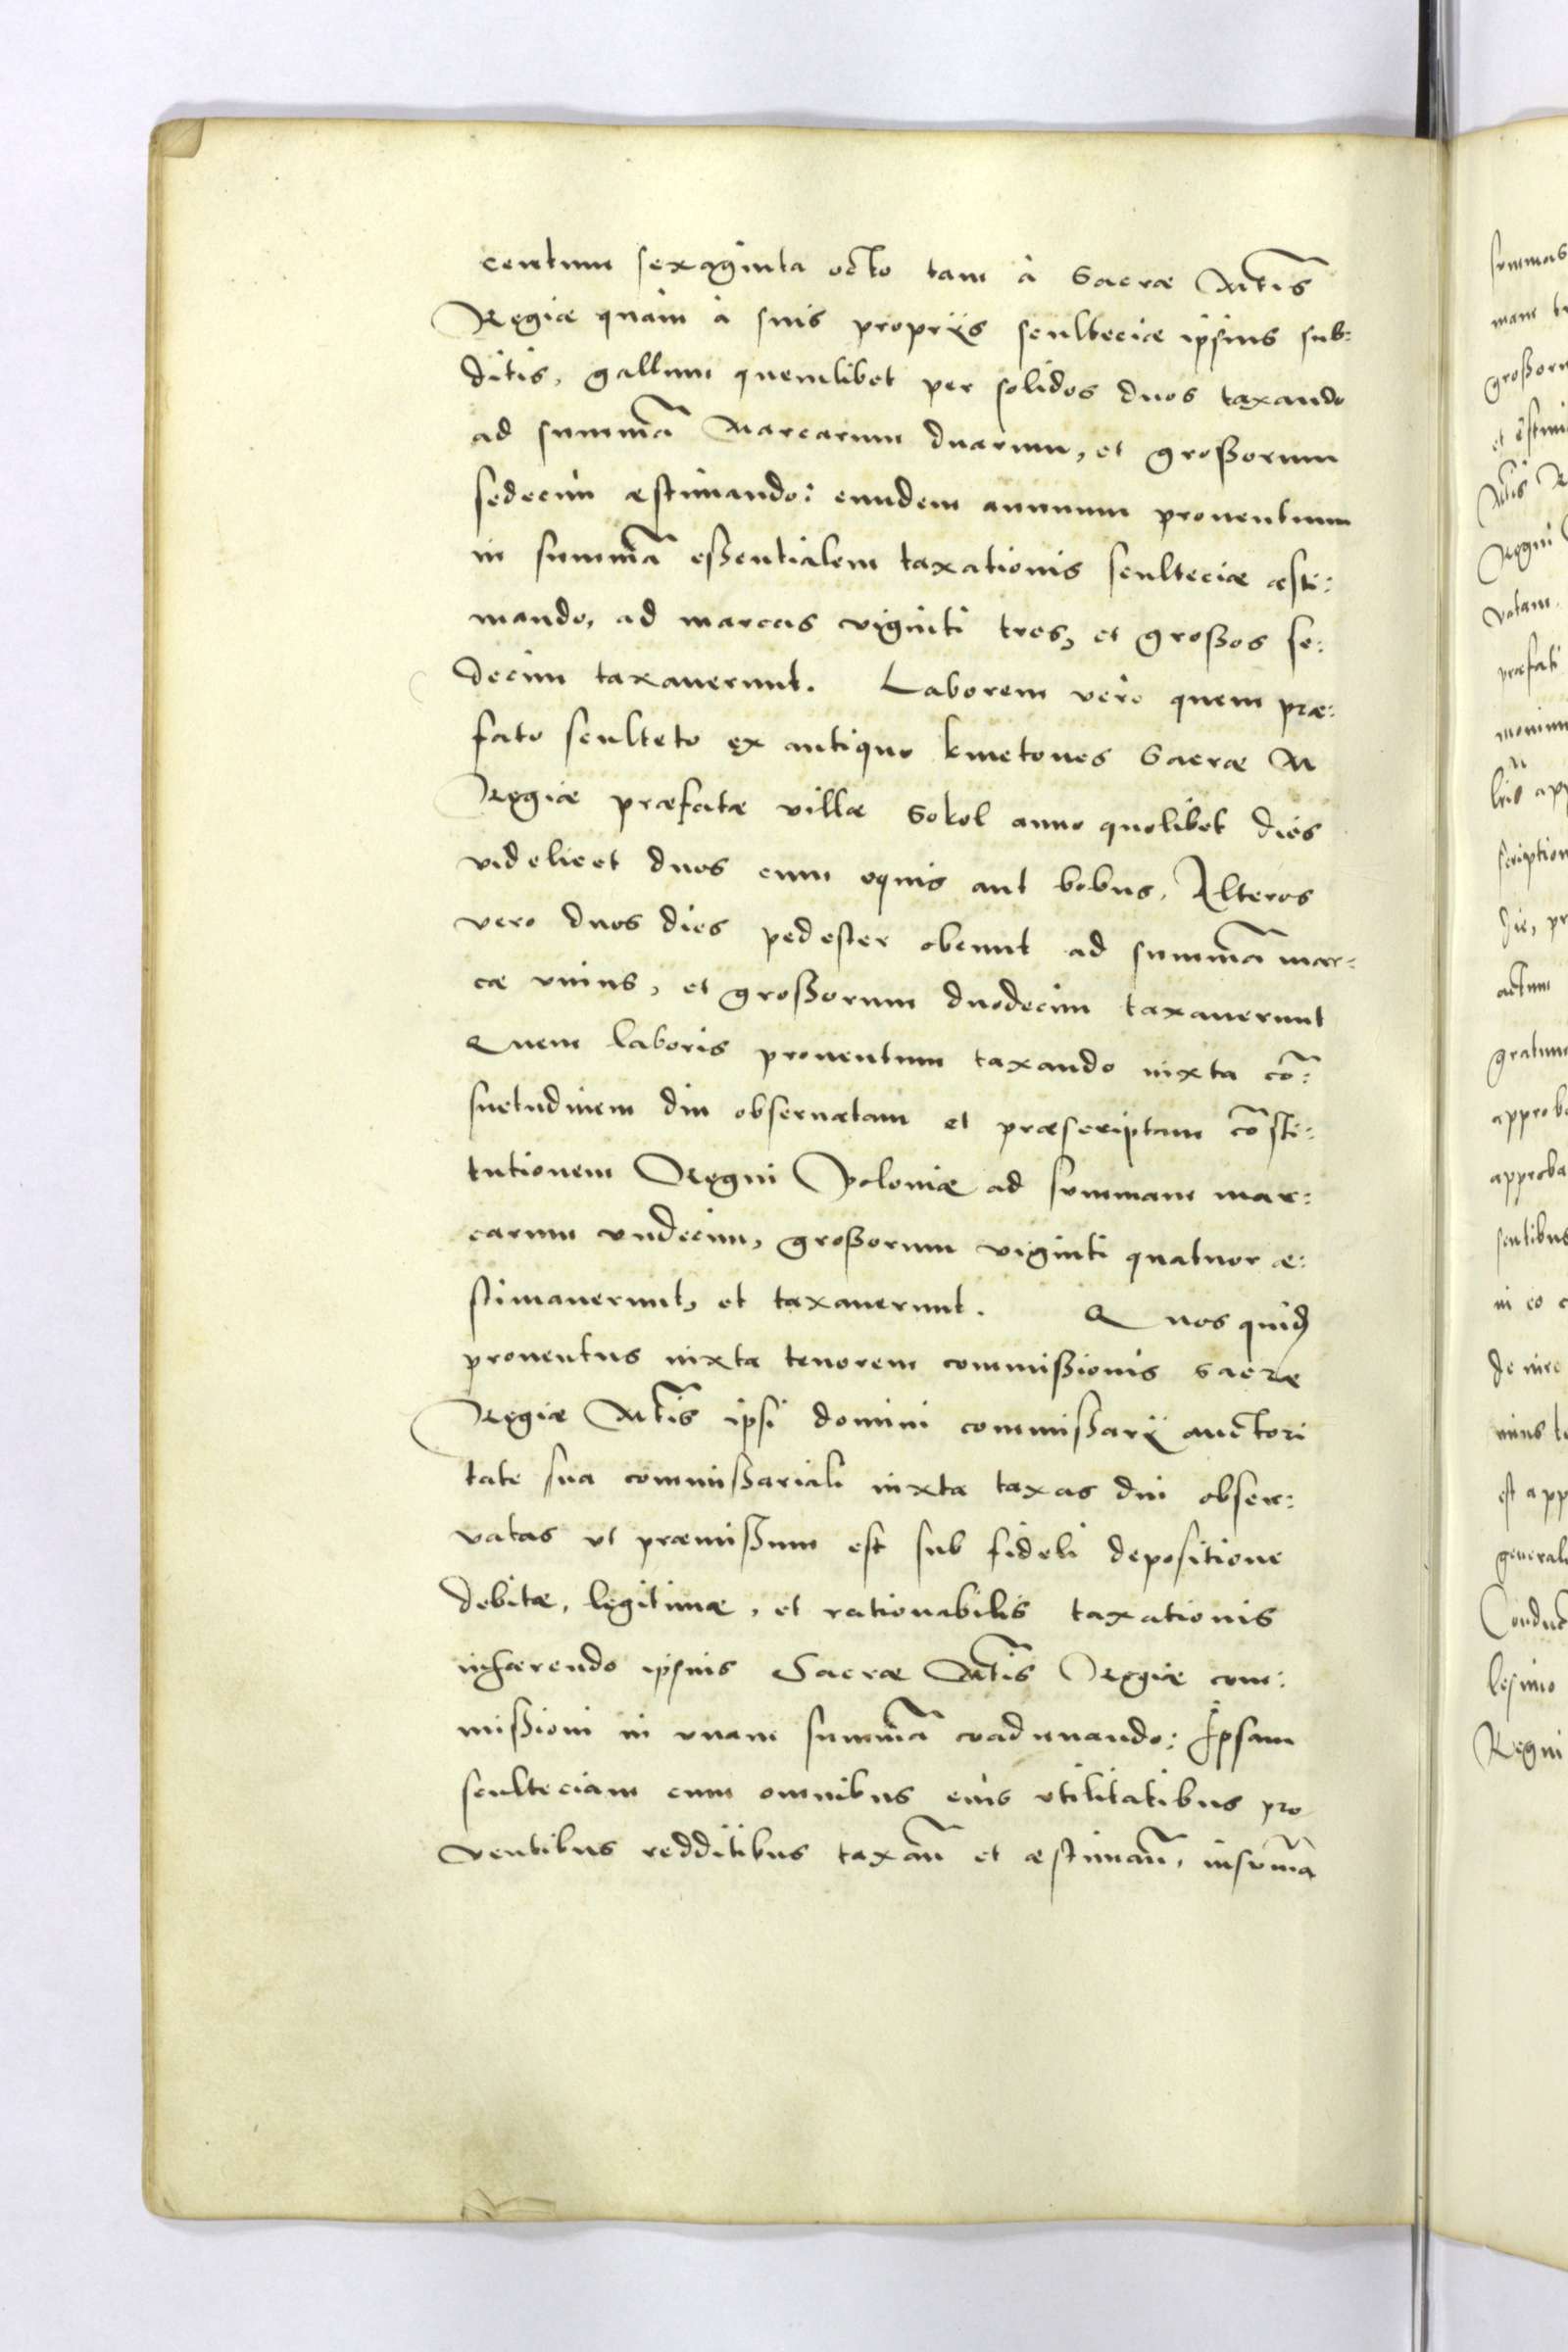 centum sexaginta octo tam à Sacræ Mtis
Regiæ quàm à suis proprijs sculteciæ ipsius sub:
ditis, gallum quemlibet per solidos duos taxando
ad summã Marcarum duarum, et großorum
sedecim æstimando: eundem annuum prouentum
in summã eßentialem taxationis sculteciæ æsti:
mando, ad marcas viginti tres, et großos se:
decim taxauerunt. Laborem vero quem præ:
fato sculteto ex antiquo kmetones Sacræ M
Regiæ præfatæ villæ Sokol anno quolibet dies
videlicet duos cum equis aut bobus, Alteros
vero duos dies pedester obeunt ad summã mar:
cæ vnius, et großorum duodecim taxauerunt
Quem laboris prouentum taxando iuxta cõ:
suetudinem diu obseruatam et præscriptam cõsti:
tutionem Regni Poloniæ ad summam mar:
carum vndecim, großorum viginti quatuor æ:
stimauerunt, et taxauerunt. Quos quid
prouentus iuxta tenorem commißionis sacræ
Regiæ Mtis ipsi domini commißarij auctori
tate sua commißariali iuxta taxas diu obser:
vatas vt præmißum est sub fideli depositione
debitæ, legitimæ, et rationabilis taxationis
inhærendo ipsius Sacræ Mtis Regiæ com:
mißioni in vnam summã coadunando: Ipsam
sculteciam cum omnibus eius vtilitatibus pro
ventibus redditibus taxañ et æstimañ, insũma
summas
mam
großoru
et æstim
Mtis R
Regni
votam
præfati
scription
die, pr
actum
gratum
approb
approba
sentibus
in eo
de iure
est app
general
Conduc
lesimo
Regni